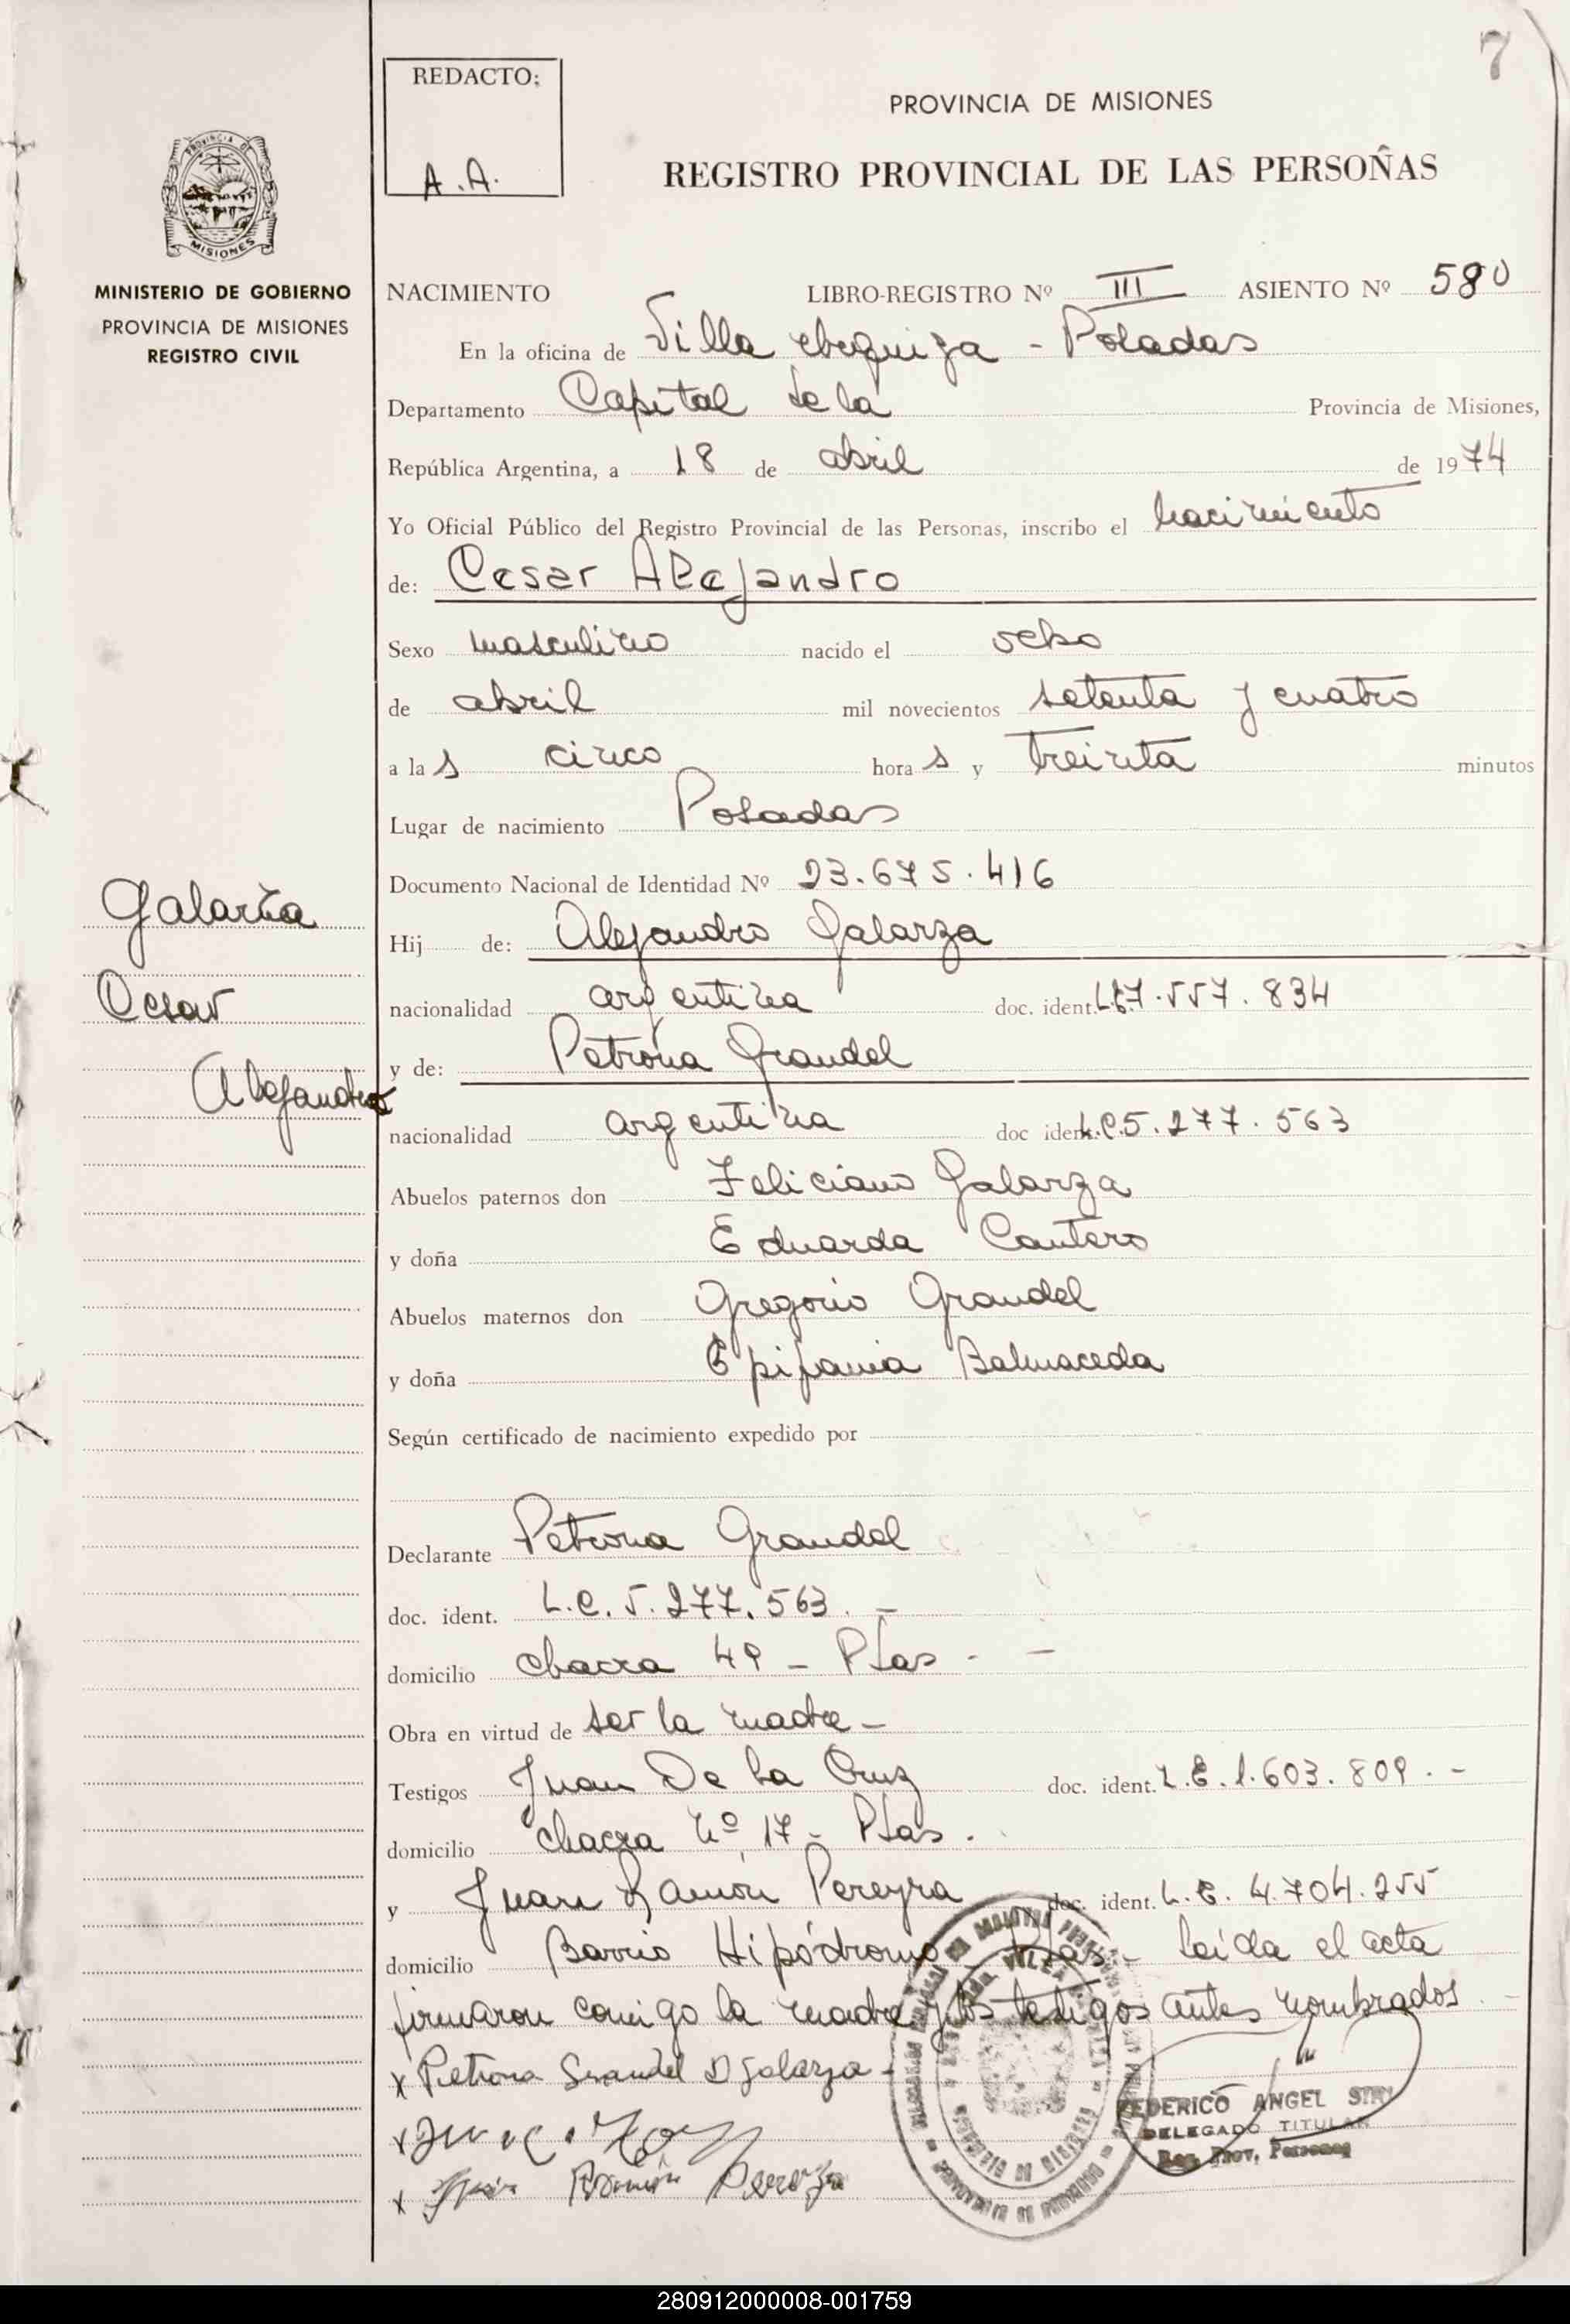 7
REDACTO:
A.A.
PROVINCIA DE MISIONES
REGISTRO PROVINCIAL DE LAS PERSOÑAS
MISIONES
MINISTERIO DE GOBIERNO
PROVINCIA DE MISIONES
REGISTRO CIVIL
NACIMIENTO LIBRO-REGISTRO Nº III ASIENTO Nº 580
En la oficina de Villa - Posadas
Departamento Capital de la Provincia de Misiones,
República Argentina, a 18 de abril de 1974
Yo Oficial Público del Registro Provincial de las Personas, inscribo el nacimiento
de: Cesar Alejandro
Sexo masculino nacido el ocho
de abril mil novecientos setenta y cuatro
a las cinco horas y treinta minutos
Lugar de nacimiento Posadas
Documento Nacional de Identidad Nº 23.675.416
Galarza
Cesar
Alejandro
Hij de: Alejandro Galarza
nacionalidad argentina doc. ident. 7.557.834
y de: Petrona Grandel
nacionalidad argentina doc ident. L.C.5.277.563
Abuelos paternos don Feliciano Galarza
y doña Eduarda Cantero
Abuelos maternos don Gregorio Grandel
y doña Epifania Balmaceda
Según certificado de nacimiento expedido por
Declarante Petrona Grandel
doc. ident. L.C. 5.277.563. -
domicilio chacra 49 - Pdas - -
Obra en virtud de ser la madre -
Testigos Juan De la Cruz doc. ident. L.E.1.603.809. -
domicilio chacra Nº 17 - Pdas.
y Juan Ramón Pereyra doc. ident. L.E. 4.704.255
domicilio Barrio Hipódromo - Pdas - leida el acta
firmaron conmigo la madre y los testigos antes nombrados -
x Petrona Grandel D Galarza -
x Juan Ramón Pereyra
FEDERICO ANGEL
DELEGADO TITULAR
Reg. Prov. Personas
280912000008-001759